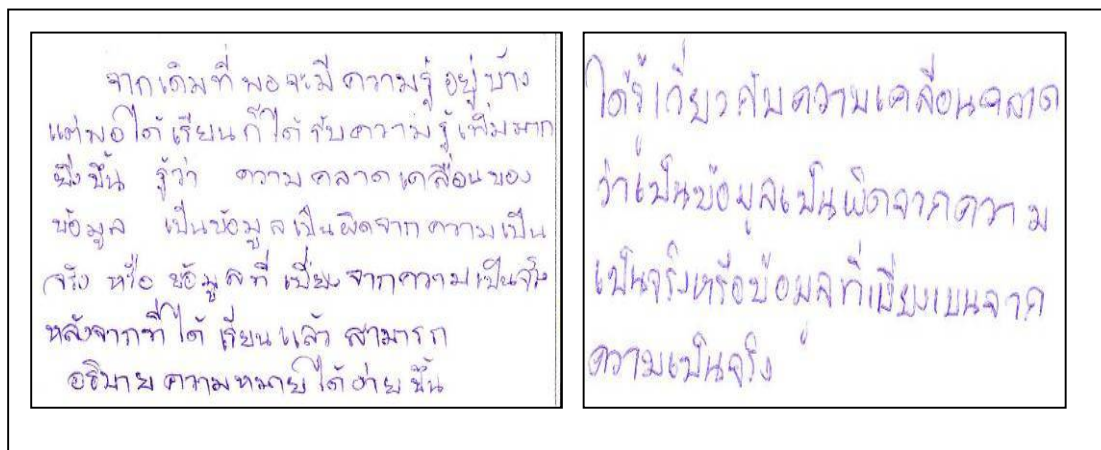 จากเดิมที่พอจะมีความรู้อยู่บ้าง
แต่พอได้เรียนก็ได้รับความรู้เพิ่มมาก
ยิ่งขึ้น รู้ว่า ความคลาดเคลื่อนของ
ข้อมูล เป็นข้อมูลเป็นผิดจากความเป็น
จริง หรือ ข้อมูลที่ เบี่ยงจากความเป็นจริง
หลังจากที่ได้ เรียนแล้ว สามารถ
อธิบายความหมายได้ง่ายขึ้น
ได้รู้เกี่ยวกับความเคลื่อนคลาด
ว่าเป็นข้อมูลเป็นผิดจากความ
เป็นจริงหรือข้อมูลที่เบี่ยงเบนจาก
ความเป็นจริง